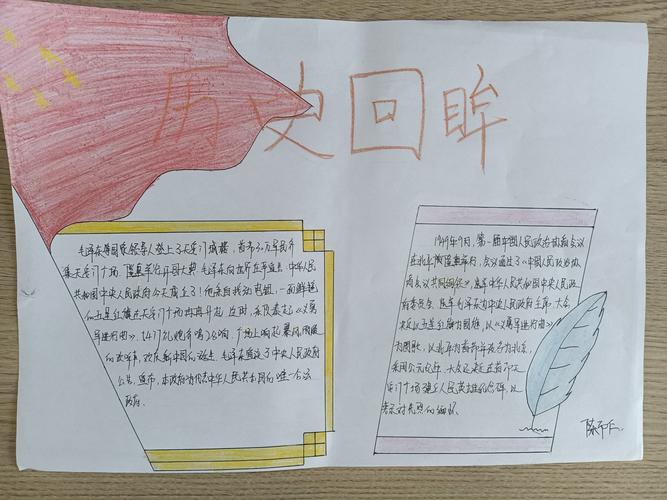 历史回眸
毛泽东等国家领导人登上了天安门城楼，首都30万军民齐
集天安门广场，隆重举行开国大典，毛泽东向世界庄严宣告，中华人民
共和国中央人民政府今天成立了！他亲自按动电钮，一面鲜艳
的五星红旗在天安门广场冉冉升起，这时，乐队奏起《义勇
军进行曲》，54门礼炮齐鸣28响，广场上响起暴风雨般
的欢呼声，欢庆新中国的诞生，毛泽东宣读了中央人民政府
公告，宣布，本政府为代表中华人民共和国的唯一合法
政府。
1949年9月，第一届中国人民政治协商会议
在北平隆重举行，会议通过了《中国人民政治协
商会议共同纲领》，选举中华人民共和国中央人民政
府委员会，选举毛泽东为中央人民政府主席，大会
决定以五星红旗为国旗，以《义勇军进行曲》
为国歌，以北平为首都并改名为北京，
采用公元纪年，大会还决定在首都天
安门广场建立人民英雄纪念碑，以
表示对先烈的缅怀。